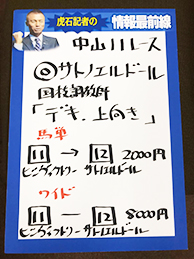 虎石記者の
情報最前線
中山11レース
◎サトノエルドール
国枝調教師
「デキ、上向き」
馬単
11 → 12 2000円
ヒンドゥタイムズ サトノエルドール
ワイド
11 − 12 8000円
サトノエルドール